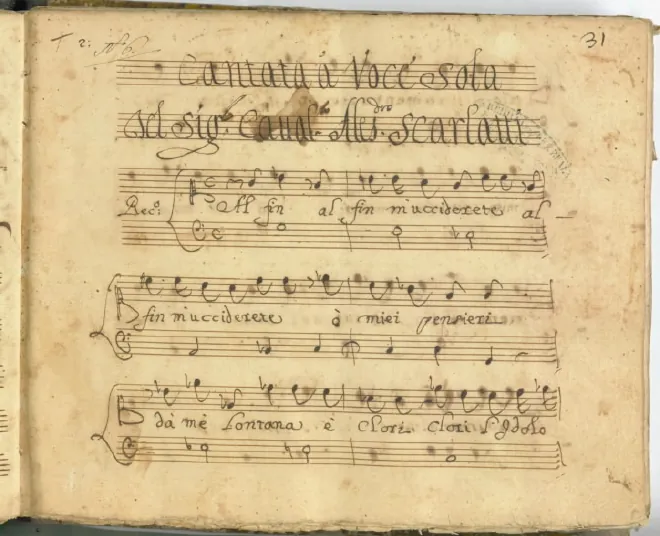 T 2:
31
Cantata à Voce Sola
Del Sig.r Caual.re Aless.dro Scarlatti
Rec.o: Al fin al fin m'ucciderete al
fin m'ucciderete ò miei pensieri
dà mè Lontana è Clori Clori L'Idolo